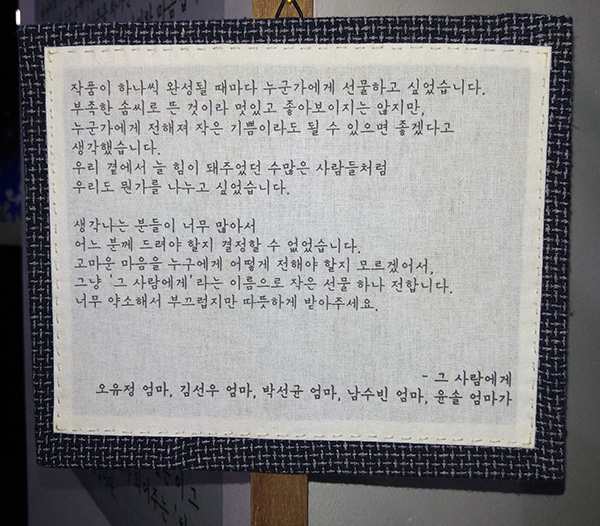 작품이 하나씩 완성될 때마다 누군가에게 선물하고 싶었습니다.
부족한 솜씨로 뜬 것이라 멋있고 좋아보이지는 않지만,
누군가에게 전해져 작은 기쁨이라도 될 수 있으면 좋겠다고
생각했습니다.
우리 곁에서 늘 힘이 돼주었던 수많은 사람들처럼
우리도 뭔가를 나누고 싶었습니다.
생각나는 분들이 너무 많아서
어느 분께 드려야 할지 결정할 수 없었습니다.
고마운 마음을 누구에게 어떻게 전해야 할지 모르겠어서,
그냥 '그 사람에게'라는 이름으로 작은 선물 하나 전합니다.
너무 약소해서 부끄럽지만 따뜻하게 받아주세요.
- 그 사람에게
오유정 엄마, 김선우 엄마, 박선균 엄마, 남수빈 엄마, 윤솔 엄마가